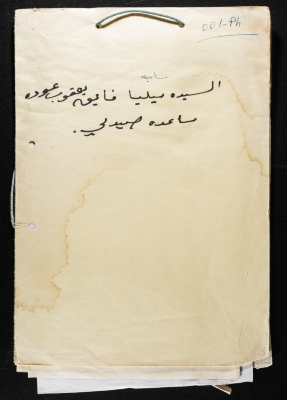 001-Ph
السيده ميليا فايق يعقوب عوده
مساعده صيدلي.